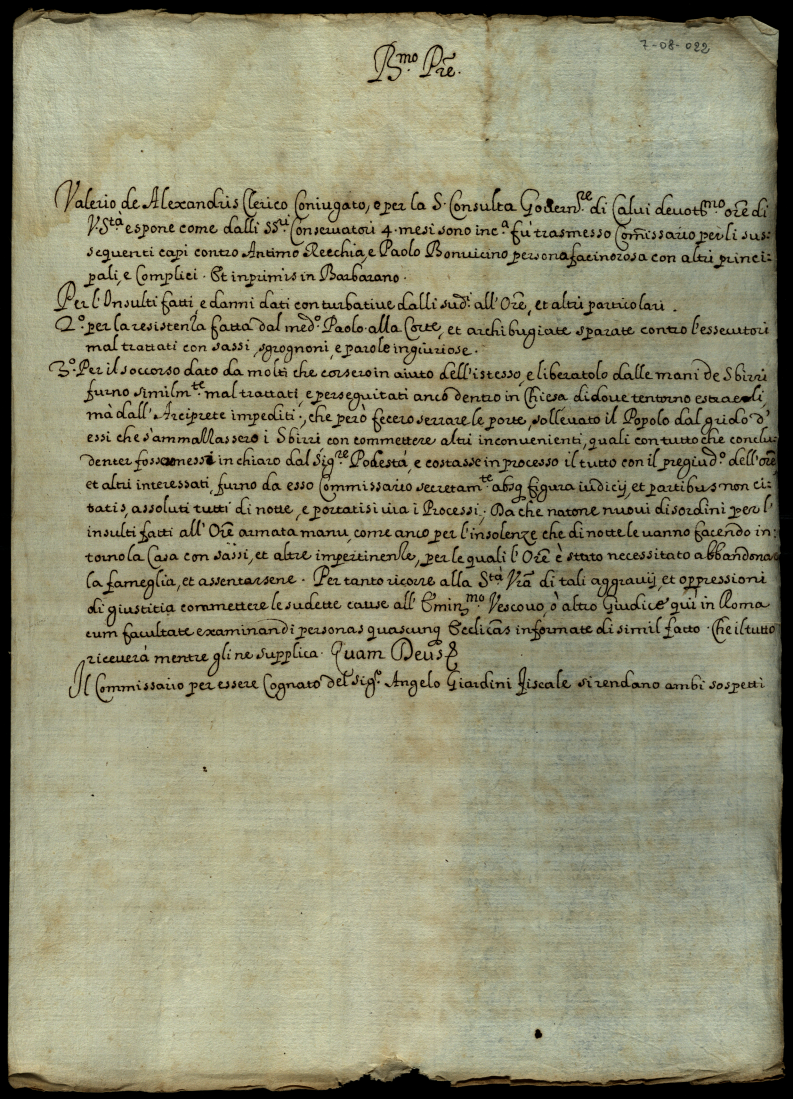 7-08-022
B.mo Pre.
Valerio de Alexandris Clerico Coniugato, e per la S. Consulta Govern.re di Calvi devot.mo ore di
V. Stà espone come dalli SS.ri Conservatori 4. mesi sono inc.a fù trasmesso Comissario per li sus:
sequenti capi contro Antimo Recchia, e Paolo Bonvicino persona facinorosa con altri princi:
pali, e Complici. Et inprimis in Barbarano.
Per l'Insulti fatti, e danni dati con turbative dalli sud.i all'Ore, et altri particolari.
2.o per la resistenza fatta dal med.o Paolo alla Corte, et archibugiate sparate contro l'essecutori
mal trattati con sassi, sgrognoni, e parole ingiuriose.
3.o Per il soccorso dato da molti che corsero in aiuto dell'istesso, e liberatolo dalle mani de Sbirri
furno similm.te mal trattati, e perseguitati anco dentro in Chiesa di dove tentorno estraerli
mà dall'Arciprete impediti, che però fecero serrare le porte, sollevato il Popolo dal grido d'
essi che s'ammallassero i Sbirri con commettere altri inconvenienti, quali con tutto che conclu:
denter fossero messi in chiaro dal Sig.re Podestà, e costasse in processo il tutto con il pregiud.o dell'ore
et altri interessati, furno da esso Commissario secretam.te absq figura iudicij, et partibus non ci:
tatis, assoluti tutti di notte, e portatisi via i Processi. Da che natone nuovi disordini per l'
insulti fatti all'Ore armata manu, come anco per l'insolenze che di notte le vanno facendo in:
torno la Casa con sassi, et altre impertinenze, per le quali l'Ore è stato necessitato abbandonar
la fameglia, et assentarsene. Per tanto ricorre alla Stà Vra di tali aggravij, et oppressioni
di giustitia commettere le sudette cause all'Emin.mo Vescovo, ò altro Giudice qui in Roma
cum facultate examinandi personas quascunq Ecclicas informate di simil fatto. Che il tutto
riceverà mentre gli ne supplica. Quam Deus &
Il Commissario per essere Cognato del sig.r Angelo Giardini Fiscale si rendano ambi sospetti